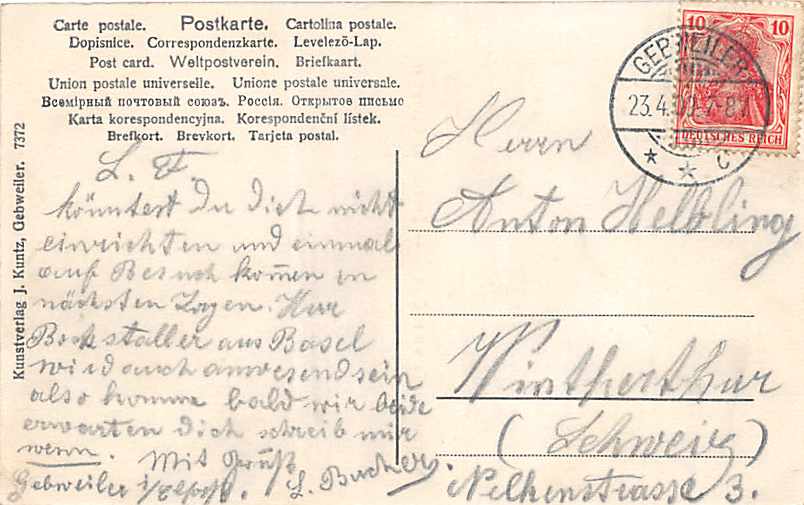 Carte postale. Postkarte. Cartolina postale.
Dopisnice. Correspondenzkarte. Levelező-Lap.
Post card. Weltpostverein. Briefkaart.
Union postale universelle. Unione postale universale.
Всемірный почтовый союзъ. Россія. Открытое письмо
Karta korespondencyjna. Korespondenční lístek.
Brefkort. Brevkort. Tarjeta postal.
Kunstverlag J. Kuntz, Gebweiler. 7372
10 10
DEUTSCHES REICH
GEBWEILER
23.4.
* * C
L. F.
könntest Du Dich nicht
einrichten und einmal
auf Besuch kom̄en in
nächsten Tagen. Herr
Bockstaller aus Basel
wird auch anwesend sein
also komme bald wir beide
erwarten Dich schreib mir
wenn. Mit Gruß
Gebweiler L. Bucher.
Herrn
Anton Helbling
Wintherthur
(Schweiz)
Nelkenstrasse 3.